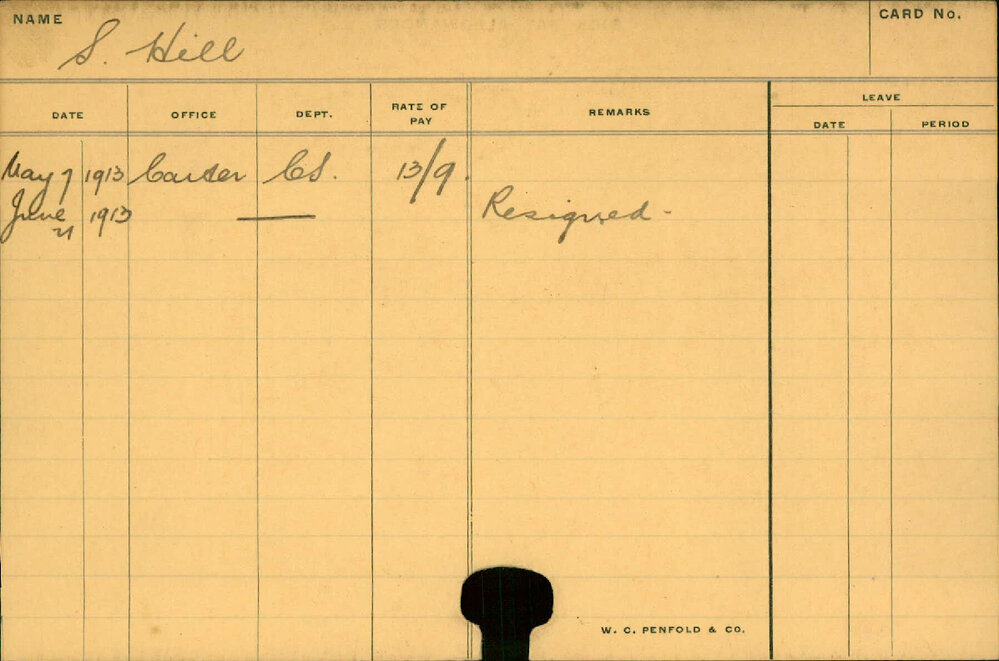 NAME
CARD No.
S. Hill
DATE OFFICE DEPT. RATE OF PAY REMARKS LEAVE
DATE PERIOD
May 7 1913 Carter CS. 13/9.
June 21 1913 —— Resigned -
W. C. PENFOLD & CO.